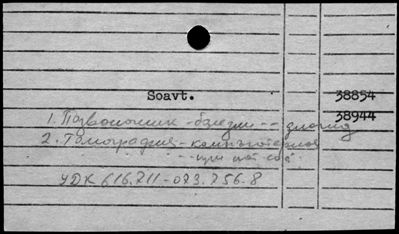 Soavt. 38854
1. Позвоночник - болезни -- 38944
2. Томография - компьютерная
-- при
УДК 616.711-073.756.8